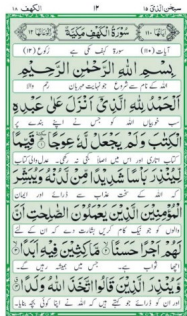 سبحٰن الذی ۱۵ ۱۴ الکھف ۱۸
سُوْرَةُ الْكَهْفِ مَكِّيَّةٌ
آیات (۱۱۰) سورۃ کہف مکی ہے رکوع (۱۲)
بِسْمِ اللّٰهِ الرَّحْمٰنِ الرَّحِيْمِ
اللہ کے نام سے شروع جو نہایت مہربان رحم والا
اَلْحَمْدُ لِلّٰهِ الَّذِيْٓ اَنْزَلَ عَلٰى عَبْدِهِ
سب خوبیاں اللہ کو جس نے اپنے بندے پر
الْكِتٰبَ وَلَمْ يَجْعَلْ لَّهٗ عِوَجًا قَيِّمًا
کتاب اتاری اور اس میں اصلاً کجی نہ رکھی عدل والی کتاب
لِّيُنْذِرَ بَاْسًا شَدِيْدًا مِّنْ لَّدُنْهُ وَيُبَشِّرَ
کہ اللہ کے سخت عذاب سے ڈرائے اور ایمان
الْمُؤْمِنِيْنَ الَّذِيْنَ يَعْمَلُوْنَ الصّٰلِحٰتِ اَنَّ
والوں کو جو نیک کام کریں بشارت دے کہ ان کے لئے
لَهُمْ اَجْرًا حَسَنًا مَّاكِثِيْنَ فِيْهِ اَبَدًا
اچھا ثواب ہے جس میں ہمیشہ رہیں گے
وَّيُنْذِرَ الَّذِيْنَ قَالُوا اتَّخَذَ اللّٰهُ وَلَدًا
اور ان کو ڈرائے جو کہتے ہیں کہ اللہ نے اپنا کوئی بچہ بنایا